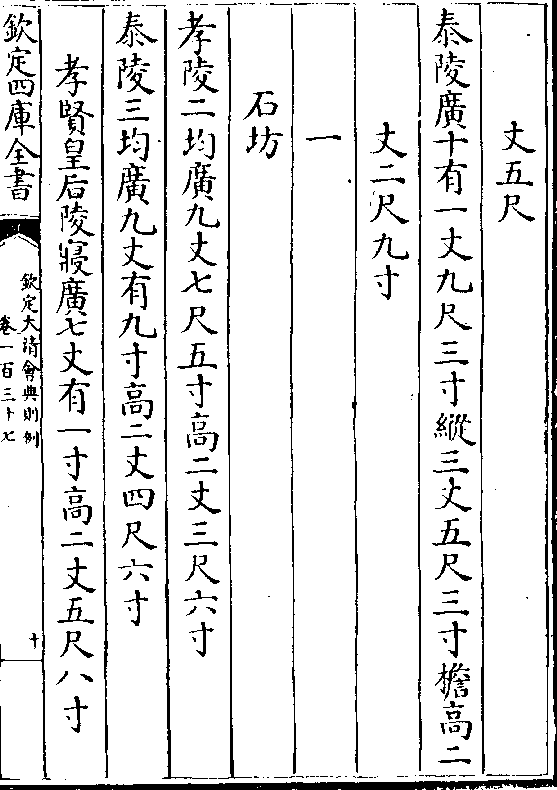 丈五尺
泰陵廣十有一丈九尺三寸縱三丈五尺三寸檐高二
丈二尺九寸
一
石坊
孝陵二均廣九丈七尺五寸高二丈三尺六寸
泰陵三均廣九丈有九寸高二丈四尺六寸
孝賢皇后陵寢廣七丈有一寸高二丈五尺八寸
欽定四庫全書
欽定大清會典則例
卷一百三十七
十